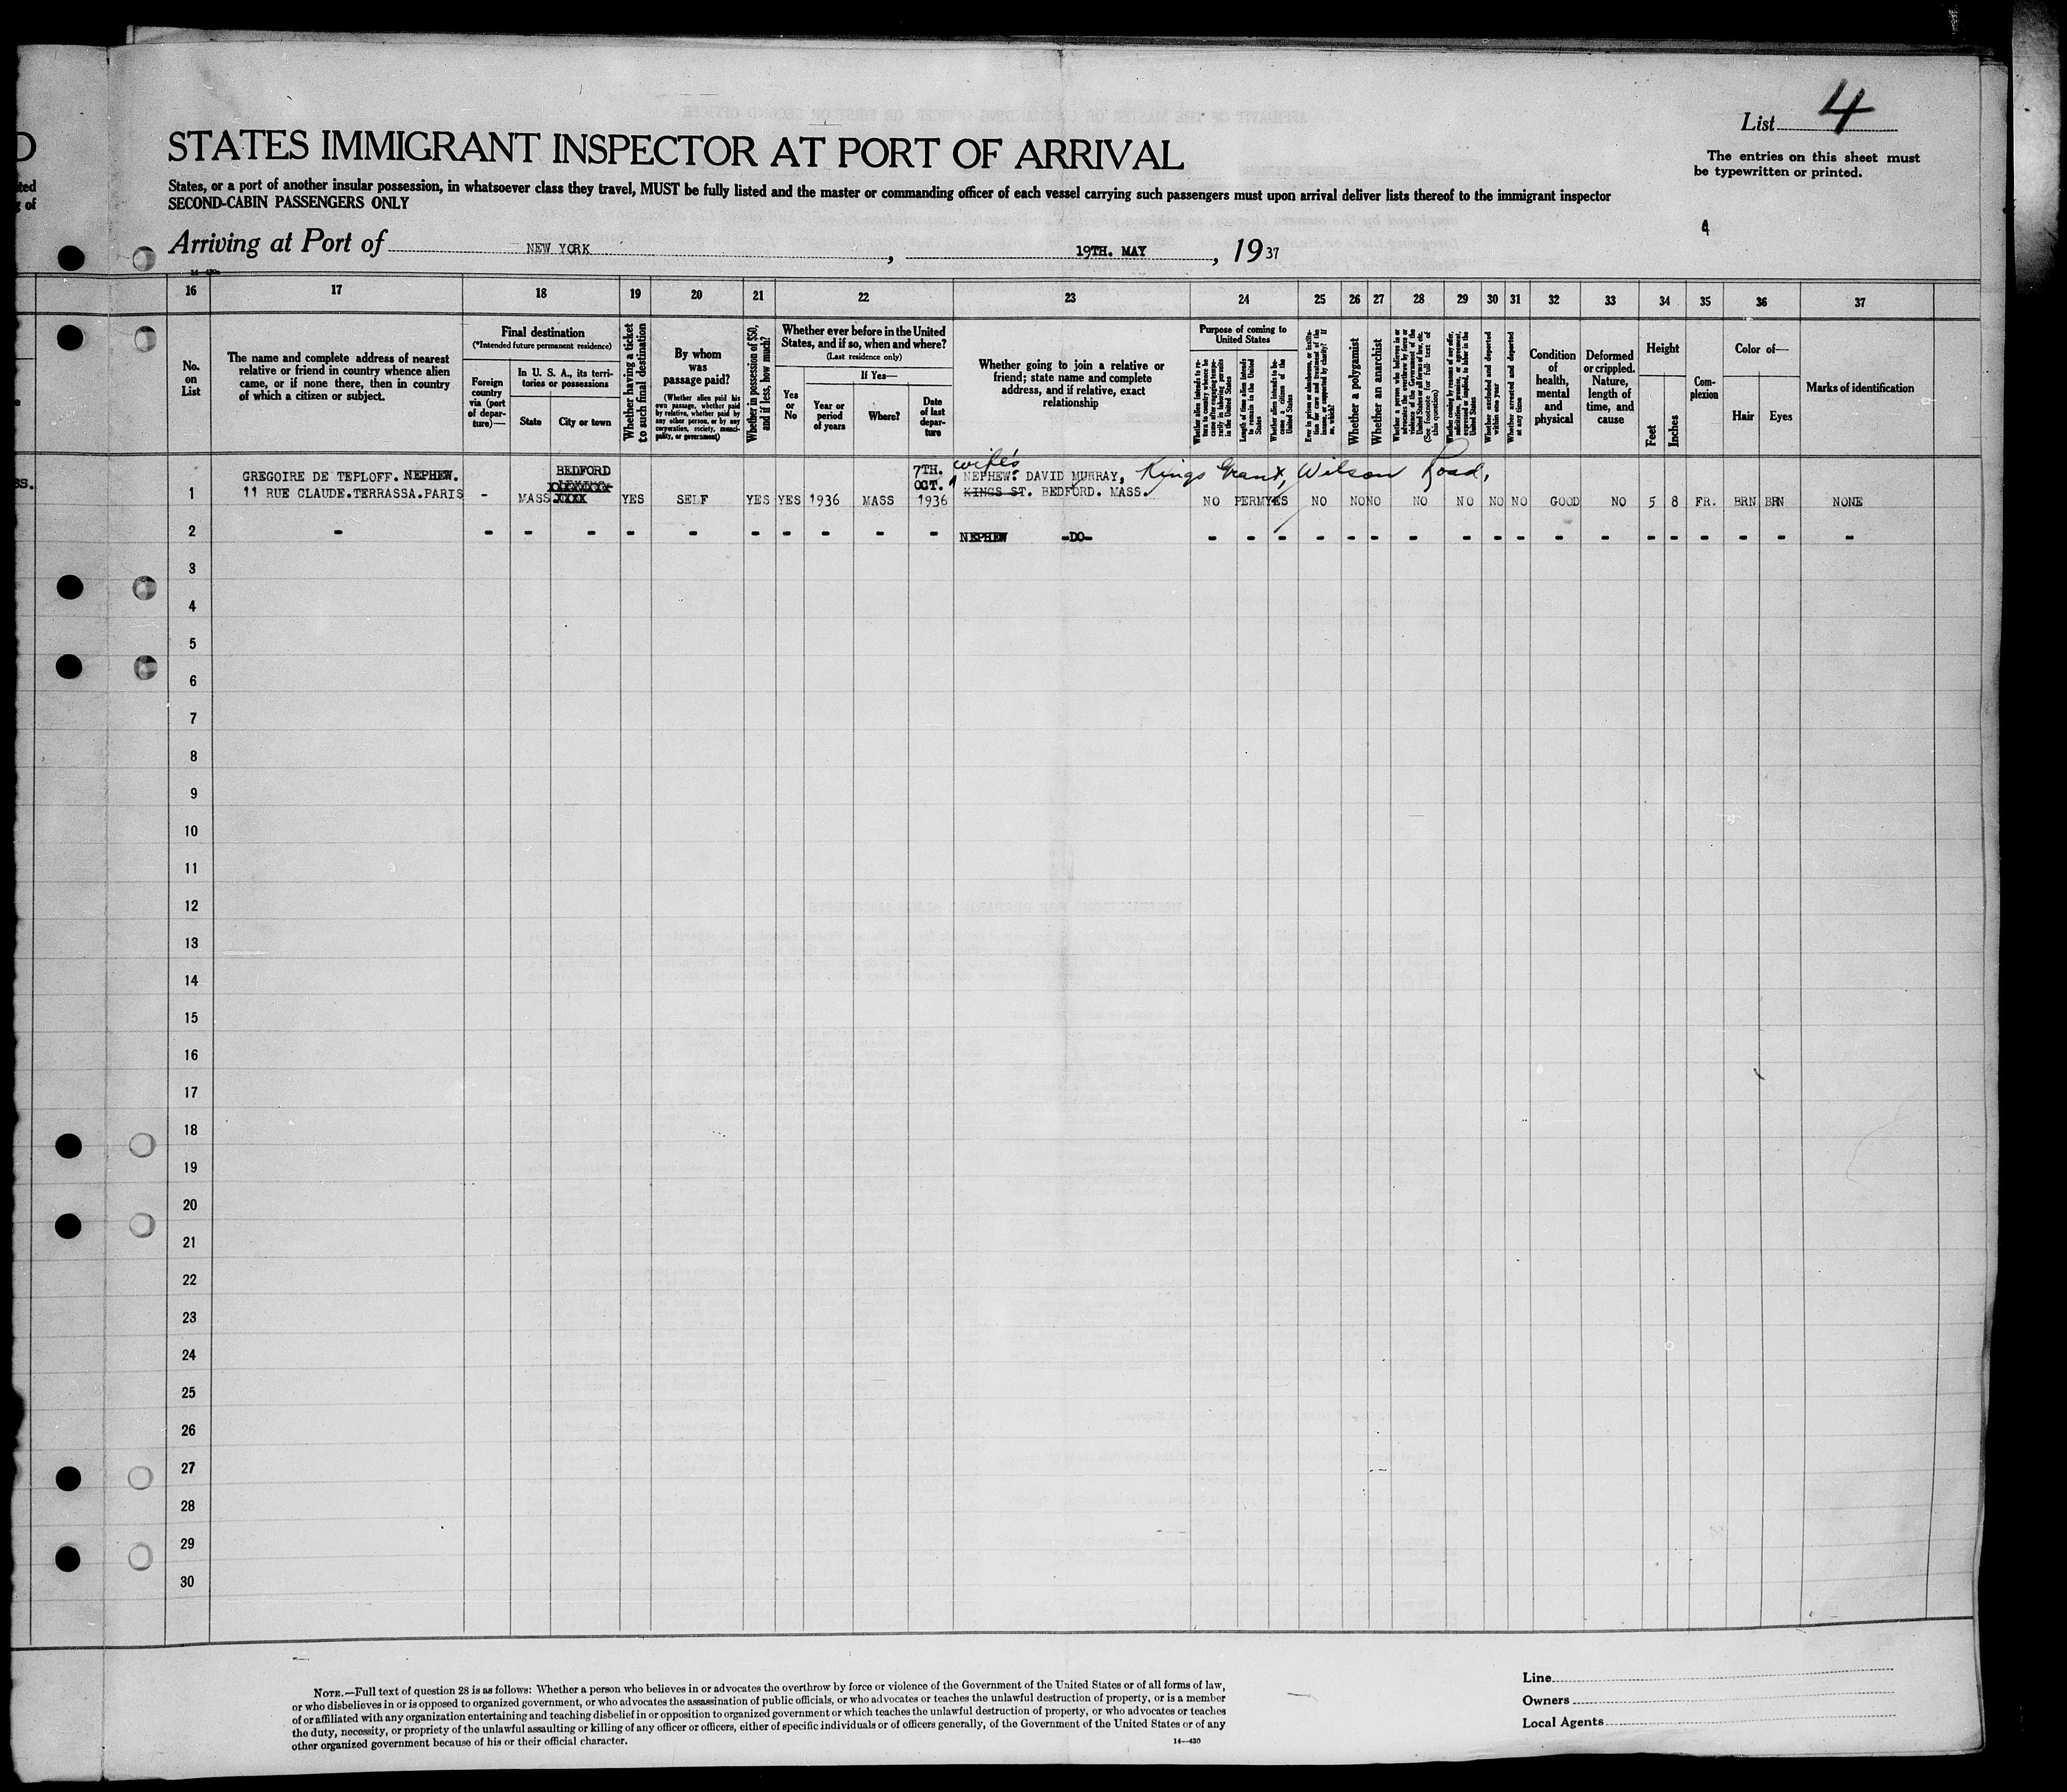 List 4
The entries on this sheet must
be typewritten or printed.
STATES IMMIGRANT INSPECTOR AT PORT OF ARRIVAL
States, or a port of another insular possession, in whatsoever class they travel, MUST be fully listed and the master or commanding officer of each vessel carrying such passengers must upon arrival deliver lists thereof to the immigrant inspector
SECOND-CABIN PASSENGERS ONLY
4
Arriving at Port of NEW YORK, 19TH. MAY, 1937
16 17 18 19 20 21 22 23 24 25 26 27 28 29 30 31 32 33 34 35 36 37
No.
on
List
The name and complete address of nearest
relative or friend in country whence alien
came, or if none there, then in country
of which a citizen or subject.
Final destination
(*Intended future permanent residence)
Foreign
country
via (port
of depar-
ture)—
In U. S. A., its terri-
tories or possessions
State
City or town
Whether having a ticket
to such final destination
By whom
was
passage paid?
(Whether alien paid his
own passage, whether paid
by relative, whether paid by
any other person, or by any
corporation, society, munici-
pality, or government)
Whether in possession of $50,
and if less, how much?
Whether ever before in the United
States, and if so, when and where?
(Last residence only)
Yes
or
No
If Yes—
Year or
period
of years
Where?
Date
of last
depar-
ture
Whether going to join a relative or
friend; state name and complete
address, and if relative, exact
relationship
Purpose of coming to
United States
Length of time alien intends
to remain in the United
States
Whether alien intends to be-
come a citizen of the
United States
Whether a polygamist
Whether an anarchist
Whether excluded and deported
within one year
Whether arrested and deported
at any time
Condition
of
health,
mental
and
physical
Deformed
or crippled.
Nature,
length of
time, and
cause
Height
Feet
Inches
Com-
plexion
Color of—
Hair
Eyes
Marks of identification
1
GREGOIRE DE TEPLOFF. NEPHEW.
11 RUE CLAUDE.TERRASSA.PARIS
-
MASS.
BEDFORD
YES
SELF
YES
YES
1936
MASS
7TH.
OCT.
1936
wife's
NEPHEW: DAVID MURRAY, Kings Grant, Wilson Road,
KINGS ST. BEDFORD. MASS.
NO PERM YES NO NO NO NO NO NO NO GOOD NO 5 8 FR. BRN BRN NONE
2 - - - - - - - - - - - NEPHEW -DO- - - - - - - - - - - - - - - - - - -
3
4
5
6
7
8
9
10
11
12
13
14
15
16
17
18
19
20
21
22
23
24
25
26
27
28
29
30
NOTE.—Full text of question 28 is as follows: Whether a person who believes in or advocates the overthrow by force or violence of the Government of the United States or of all forms of law,
or who disbelieves in or is opposed to organized government, or who advocates the assassination of public officials, or who advocates or teaches the unlawful destruction of property, or is a member
of or affiliated with any organization entertaining and teaching disbelief in or opposition to organized government or which teaches the unlawful destruction of property, or who advocates or teaches
the duty, necessity, or propriety of the unlawful assaulting or killing of any officer or officers, either of specific individuals or of officers generally, of the Government of the United States or of any
other organized government because of his or their official character.
14—430
Line
Owners
Local Agents